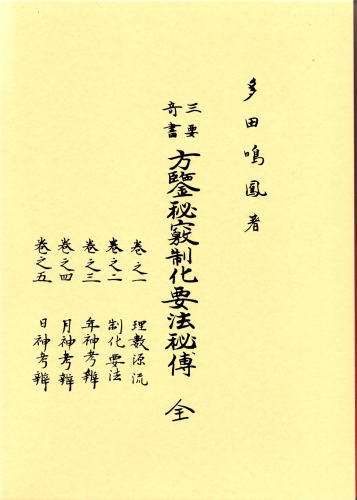 多田鳴鳳著
三要奇書
方鑒秘竅制化要法秘傳 全
巻之一 理数源流
巻之二 制化要法
巻之三 年神考辨
巻之四 月神考辨
巻之五 日神考辨